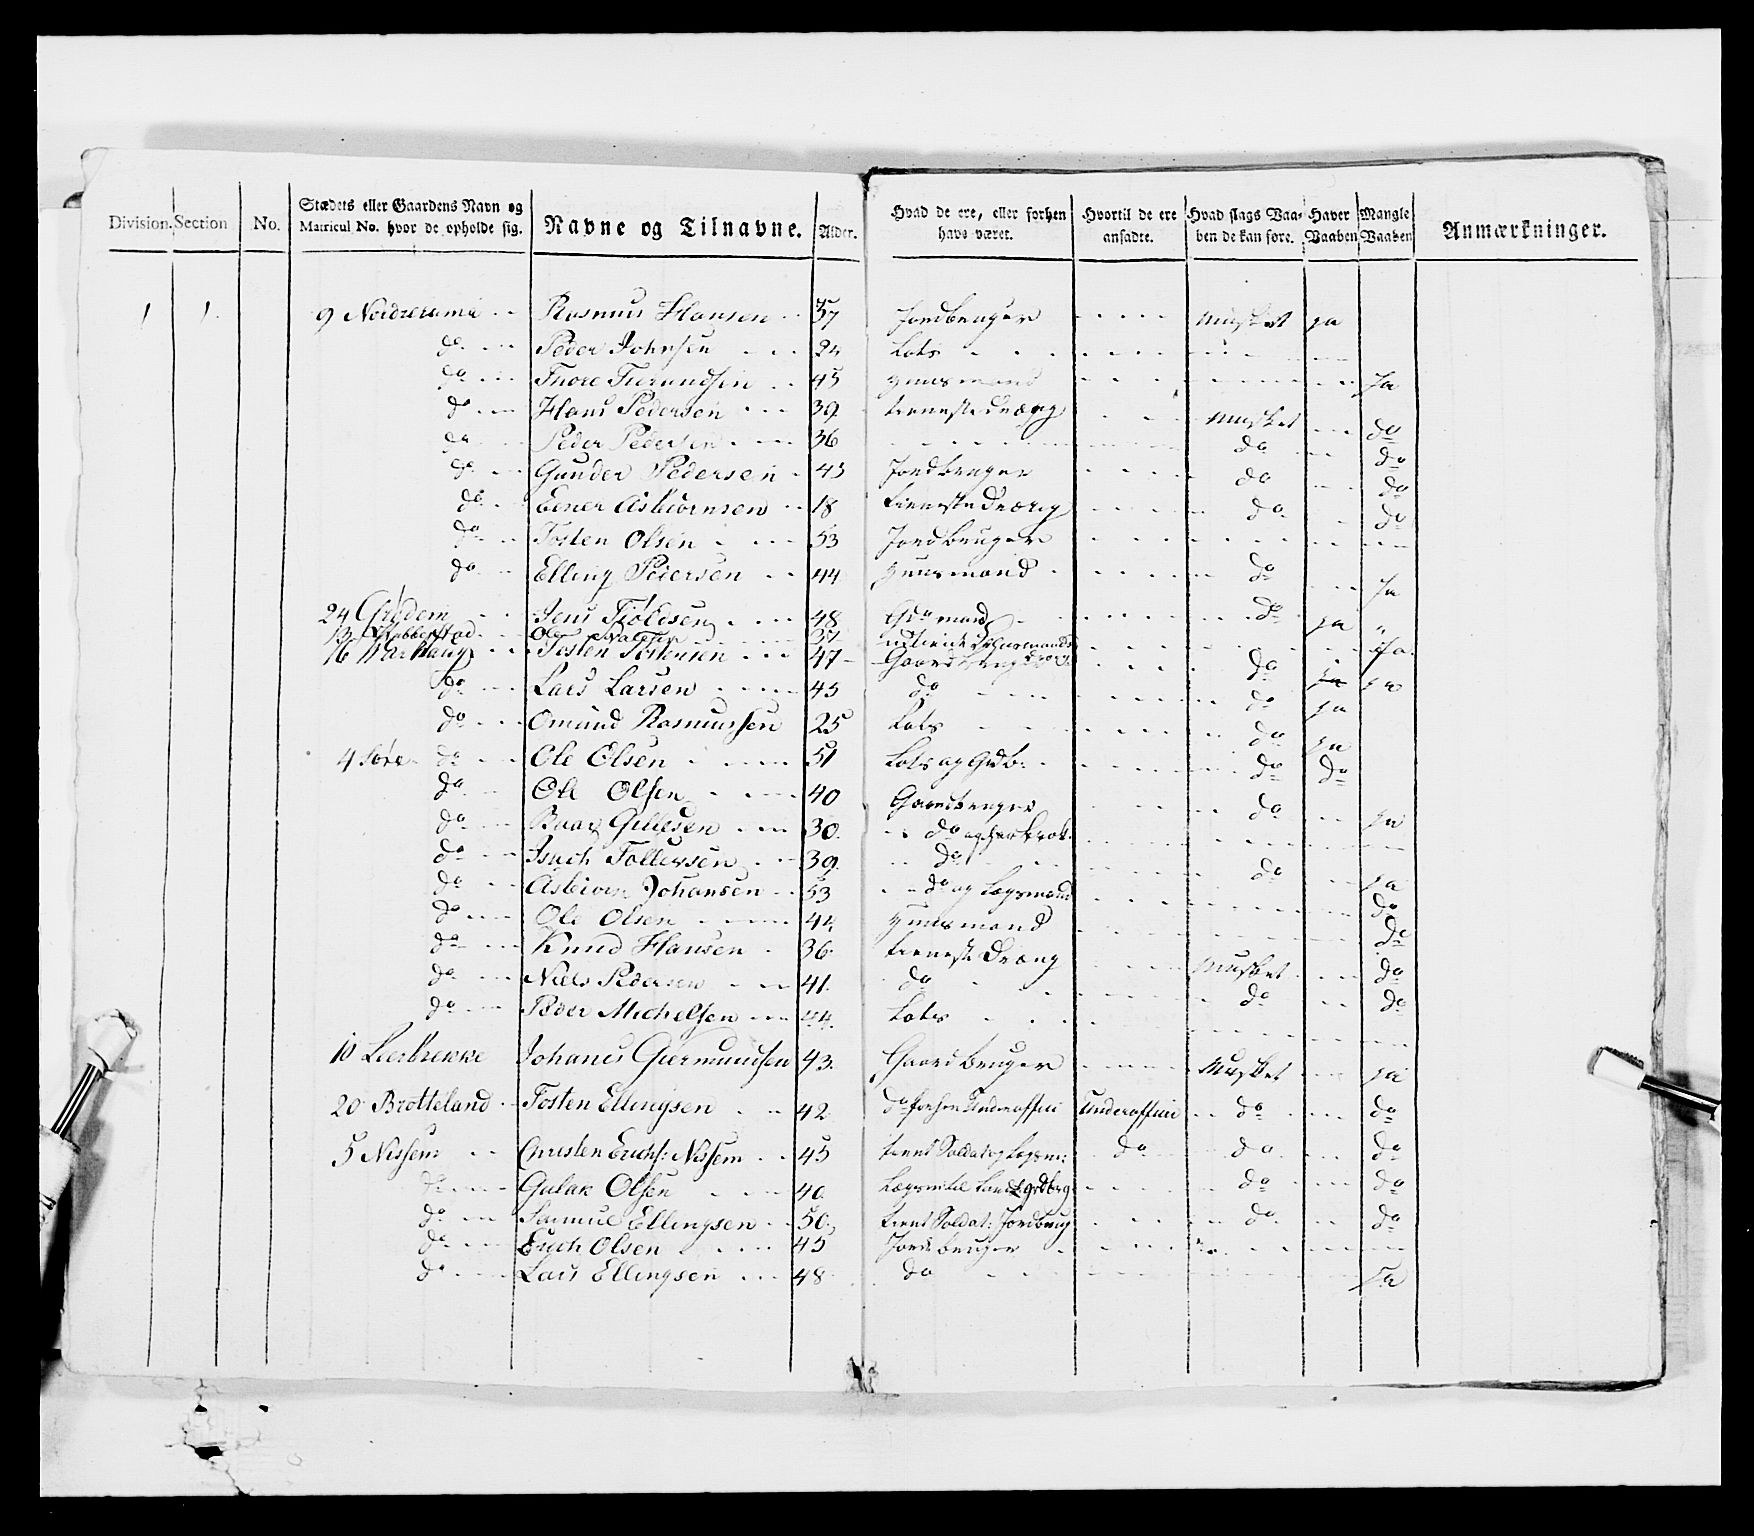 Division. Section No. Stædets eller Gaardens Navn og Matricul No. hvor de opholde sig. Navne og Tilnavne. Alder. Hvad de ere, eller forhen havs været. Hvortil de ere ansadte. Hvad slags Vaaben de kan føre. Haver Vaaben Mangle Vaaben Anmærkninger.
1 1. 9 Rasmus Hansen 37 Jordbruger Musket ja
do Peder Johnsen 24 Lots
do Thore 45 Huusmand Ja
do Hans Pedersen 39 tienestedræng Musket do
do Peder Pedersen 36 do do
do Gunder Pedersen 43 Jordbruger do do
do Einer Asbiørnsen 18 tienestedræng do do
do Tosten Olsen 53 Jordbruger
do Elling Pedersen 44 Huusmand do Ja
24 Grødem Jens 48 do ja
13 Ole 37
16 Tosten Tostensen 47 do ja Ja
do Lars Larsen 45 do do ja
do Omund Rasmussen 25 Lots do ja
4 Søre do Ole Olsen 51 Lots og Grdb: do do
do Ole Olsen 40 Gaardbruger do ja
do 30. do og
do Tollevsen 39. do do ja
do Asbiørn Johansen 53 do og Lægsmand do
do Ole Olsen 44 Huusmand do
do Knud Hansen 36. tieneste Dræng Musket do
do Niels Pedersen 41. do do do
do Peder Michelsen 44. Lots
10 Leerbrekke Johanes Giermundsen 43. Gaardbruger Musket ja
20 Brotteland Tosten Ellingsen 42 do forhen Underofficer Underofficer do do
5 Nissem Christen Erichs: Nissem 45 tient Soldat og Lægsm: do do do
do Gulak Olsen 40. do do
do Samuel Ellingsen 50. tient Soldat: Jordbrug do do
do Erich Olsen 45 Jordbruger
do Lars Ellingsen 48 do Ja